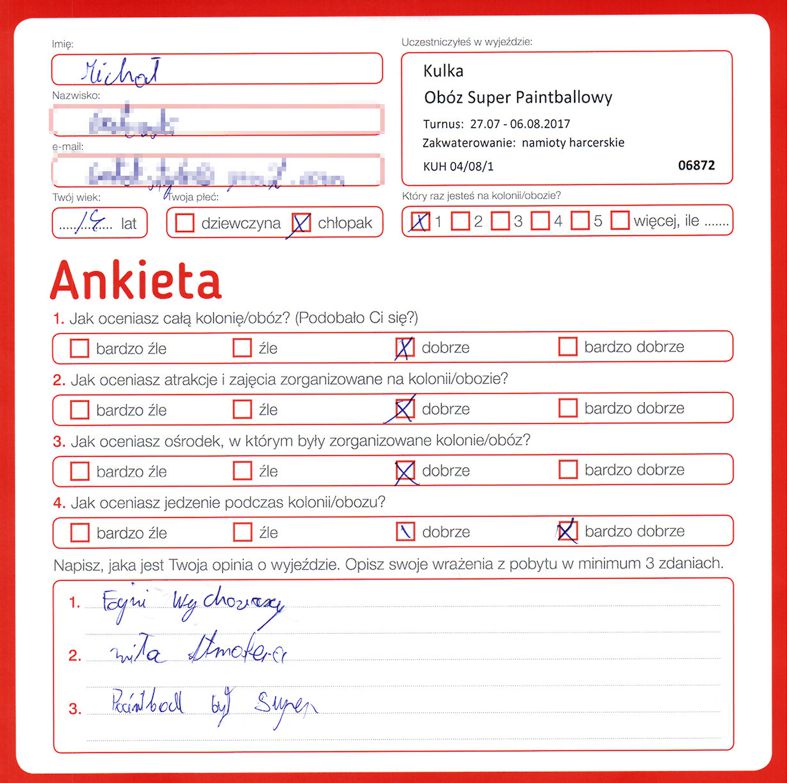 Imię:
Michał
Nazwisko:
e-mail:
Twój wiek:
14 lat
Twoja płeć:
dziewczyna chłopak
Uczestniczyłeś w wyjeździe:
Kulka
Obóz Super Paintballowy
Turnus: 27.07 - 06.08.2017
Zakwaterowanie: namioty harcerskie
KUH 04/08/1 06872
Który raz jesteś na kolonii/obozie?
1 2 3 4 5 więcej, ile .......
Ankieta
1. Jak oceniasz całą kolonię/obóz? (Podobało Ci się?)
bardzo źle źle dobrze bardzo dobrze
2. Jak oceniasz atrakcje i zajęcia zorganizowane na kolonii/obozie?
bardzo źle źle dobrze bardzo dobrze
3. Jak oceniasz ośrodek, w którym były zorganizowane kolonie/obóz?
bardzo źle źle dobrze bardzo dobrze
4. Jak oceniasz jedzenie podczas kolonii/obozu?
bardzo źle źle dobrze bardzo dobrze
Napisz, jaka jest Twoja opinia o wyjeździe. Opisz swoje wrażenia z pobytu w minimum 3 zdaniach.
1. Fajni
2. miła Atmofera
3. Paintball był super